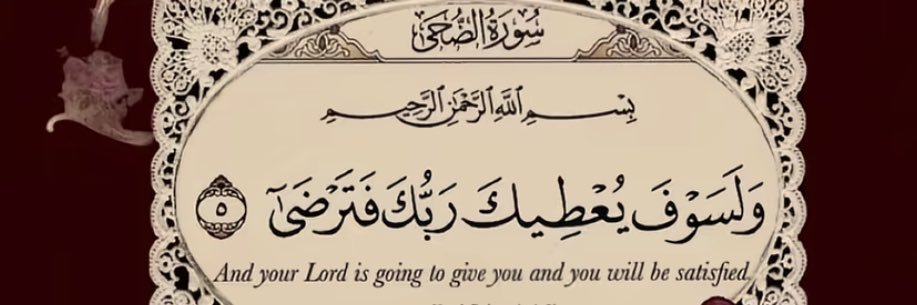 سُورَةُ الضُّحَىٰ
بِسْمِ ٱللَّهِ ٱلرَّحْمَٰنِ ٱلرَّحِيمِ
وَلَسَوْفَ يُعْطِيكَ رَبُّكَ فَتَرْضَىٰٓ ٥
And your Lord is going to give you and you will be satisfied